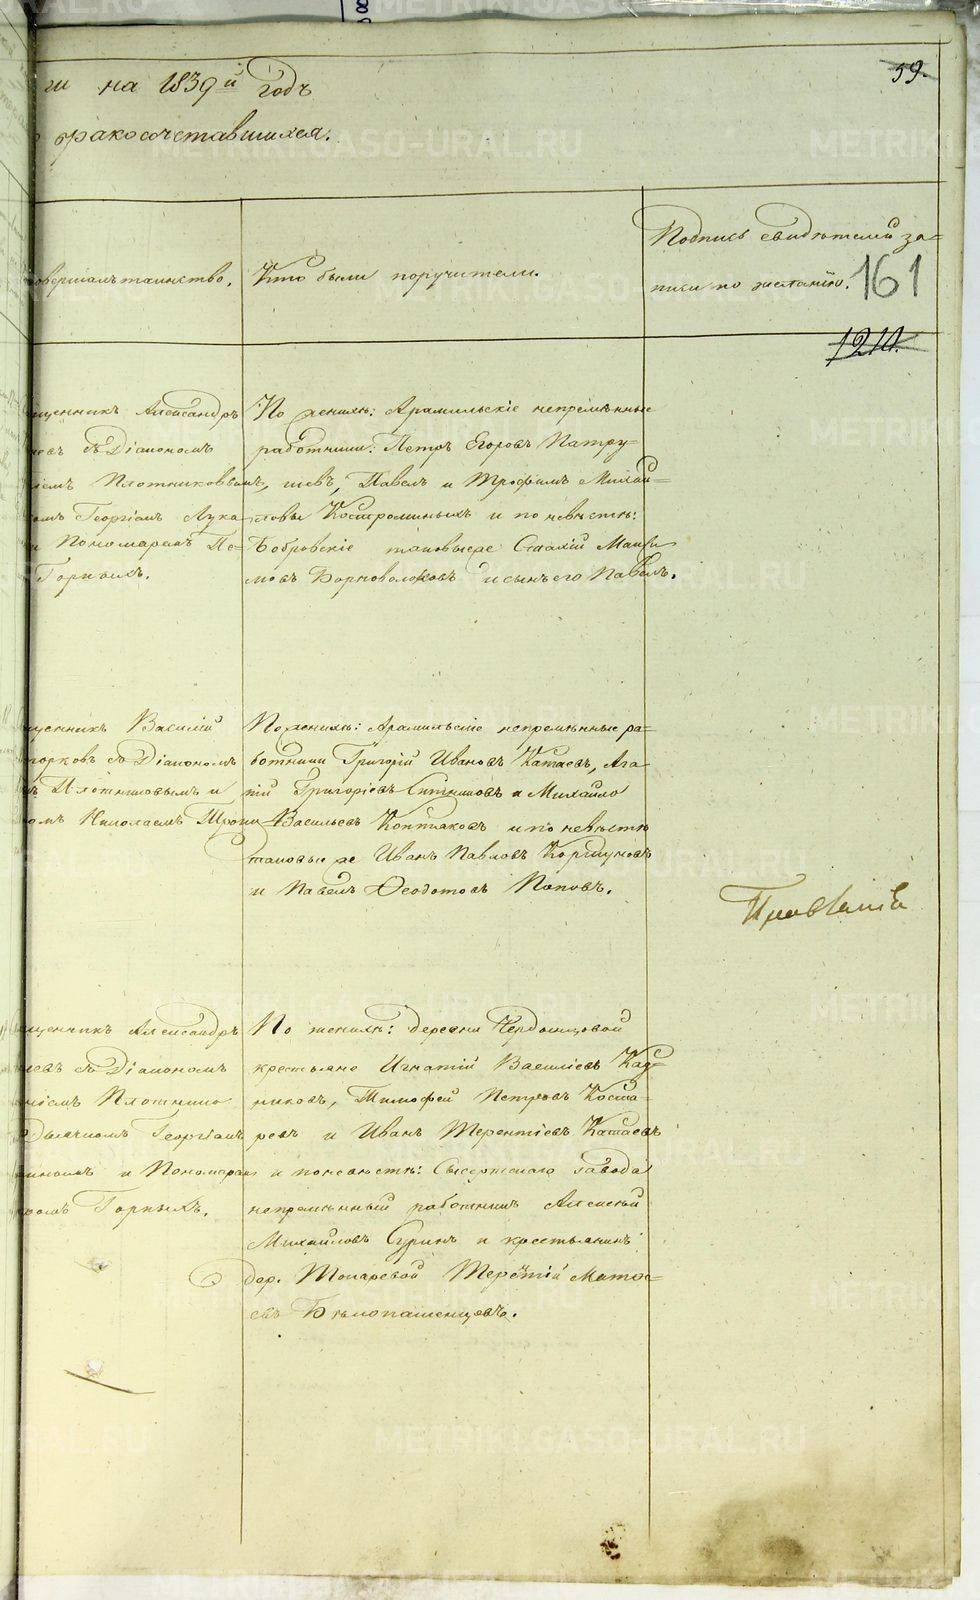 59.
ги на 1839й Годъ
бракосочетавшихся.
совершалъ таинство.
Кто были поручители.
Подпись свидѣтелей за-
писи по желанію.
161
1210.
щенникъ Александръ
съ Діакономъ
Плотниковымъ,
Георгіемъ Лука-
и Пономаремъ Пе-
Горныхъ.
По женихѣ: Арамильскіе непремѣнные
работники: Петръ Егоровъ Патру-
шевъ, Павелъ и Трофимъ Михай-
ловы Костромины и по невѣстѣ:
Бобровскіе таковыеже Макси
мовъ Черноволоковъ и сынъ его Павелъ.
щенникъ Василій
съ Діакономъ
Плотниковымъ и
омъ Николаемъ
По женихѣ: Арамильскіе непремѣнные ра-
ботники Григорій Ивановъ Катаевъ, Ага
пій Григоріевъ Ситниковъ и Михайло
Васильевъ Коптяковъ и по невѣстѣ
таковые же Иванъ Павловъ Коршуновъ
и Павелъ Ѳеодотовъ Поповъ.
щенникъ Александръ
съ Діакономъ
Плотнико
Дьячкомъ Георгіемъ
и Пономаремъ
Горныхъ.
По женихѣ: деревни
крестьяне Игнатій Василіевъ Кад-
никовъ, Тимофей Петровъ Коста-
ревъ и Иванъ Терентіевъ Катаевъ
и по невѣстѣ: Сысертскаго завода
непремѣнный работникъ Алексѣй
Михайловъ Суринъ и крестьянинъ
дер. Токаревой Терентій Матѳе-
евъ Бѣлопашенцовъ.
METRIKI.GASO-URAL.RU